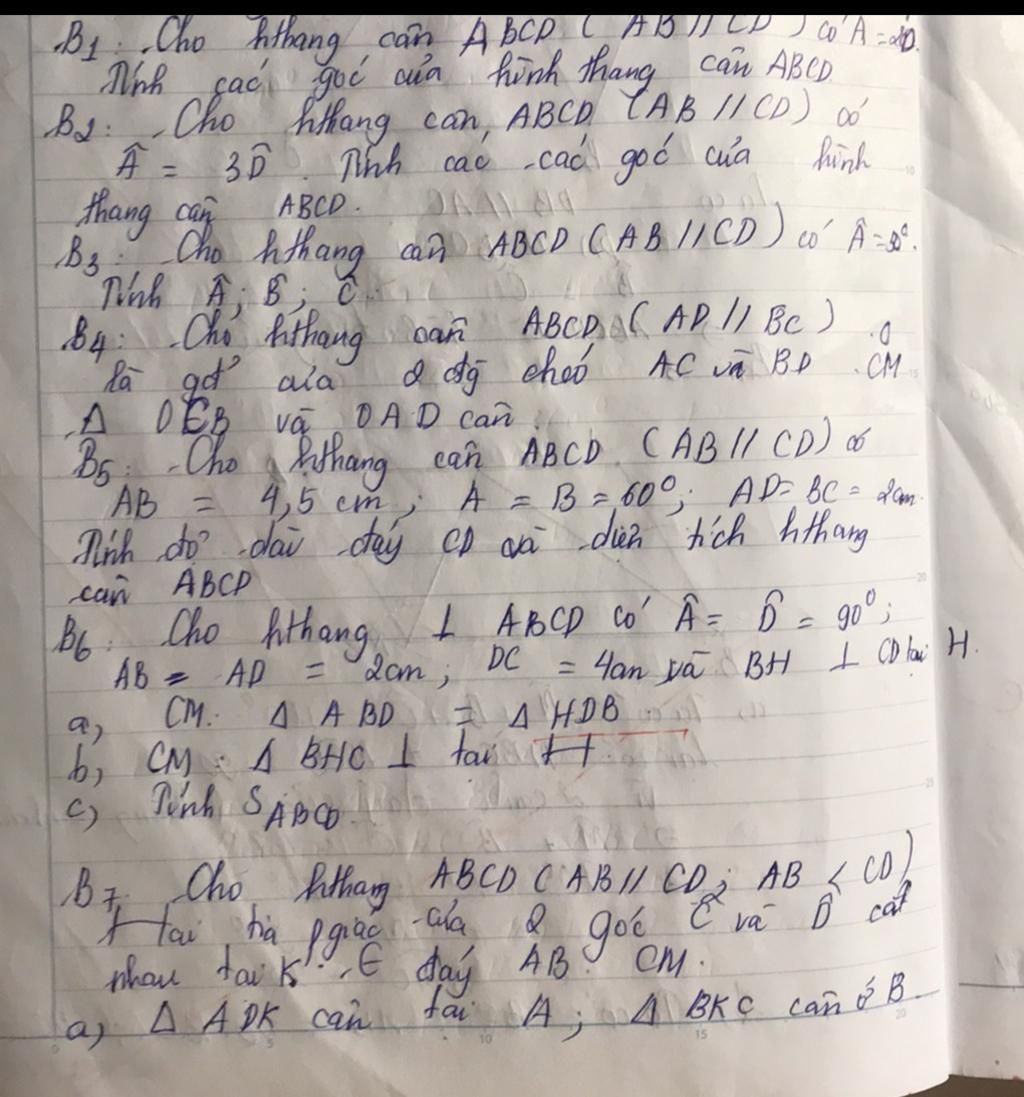 B1: Cho hthang cân ABCD (AB // CD) có Â =
Tính các góc của hình thang cân ABCD
B2: Cho hthang cân ABCD (AB // CD) có
Â = 3D̂. Tính các các góc của hình
thang cân ABCD.
B3: Cho hthang cân ABCD (AB // CD) có Â =
Tính Â; B̂; Ĉ
B4: Cho hthang cân ABCD (AD // BC) O
là gđ' của 2 đg chéo AC và BD. CM
Δ OCB và OAD cân
B5: Cho hthang cân ABCD (AB // CD) có
AB = 4,5 cm; A = B = 60°; AD = BC = 2cm.
Tính độ dài đáy CD và diện tích hthang
cân ABCD
B6: Cho hthang ⊥ ABCD có Â = D̂ = 90°;
AB = AD = 2cm; DC = 4cm và BH ⊥ CD tại H.
a, CM: Δ ABD = Δ HDB
b, CM: Δ BHC ⊥ tại H.
c, Tính S ABCD
B7: Cho hthang ABCD (AB // CD; AB < CD)
Hai tia pgiác của 2 góc Ĉ và D̂ cắt
nhau tại K ∈ đáy AB. CM.
a, Δ ADK cân tại A; Δ BKC cân ở B